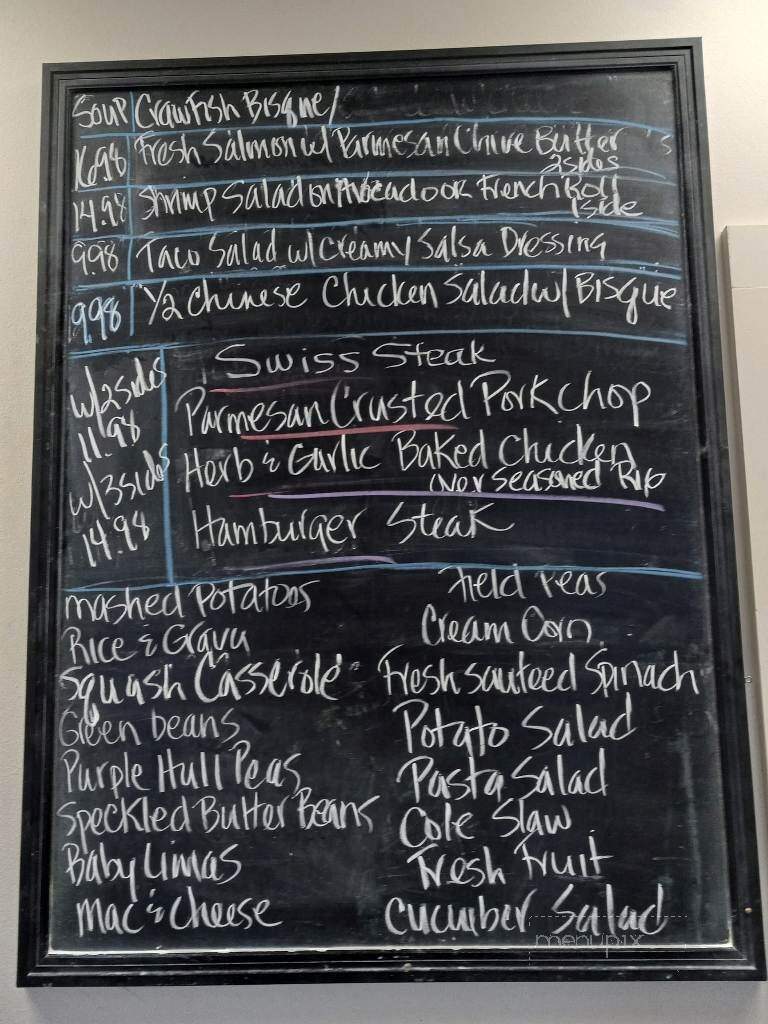 Soup Crawfish Bisque/
16.98 Fresh Salmon w/ Parmesan Chive Butter
2 sides
14.98 Shrimp Salad on Avocado or French Roll
1 side
9.98 Taco Salad w/ Creamy Salsa Dressing
9.98 1/2 Chinese Chicken Salad w/ Bisque
Swiss Steak
w/2sides
11.98
Parmesan Crusted Porkchop
Herb & Garlic Baked Chicken
over Seasoned Rice
w/3sides
14.98
Hamburger Steak
mashed Potatoes
Field Peas
Rice & Gravy
Cream Corn
Squash Casserole
Fresh sauteed Spinach
Green beans
Potato Salad
Purple Hull Peas
Pasta Salad
Speckled Butter Beans
Cole Slaw
Baby Limas
Fresh Fruit
Mac & Cheese
Cucumber Salad
menupix